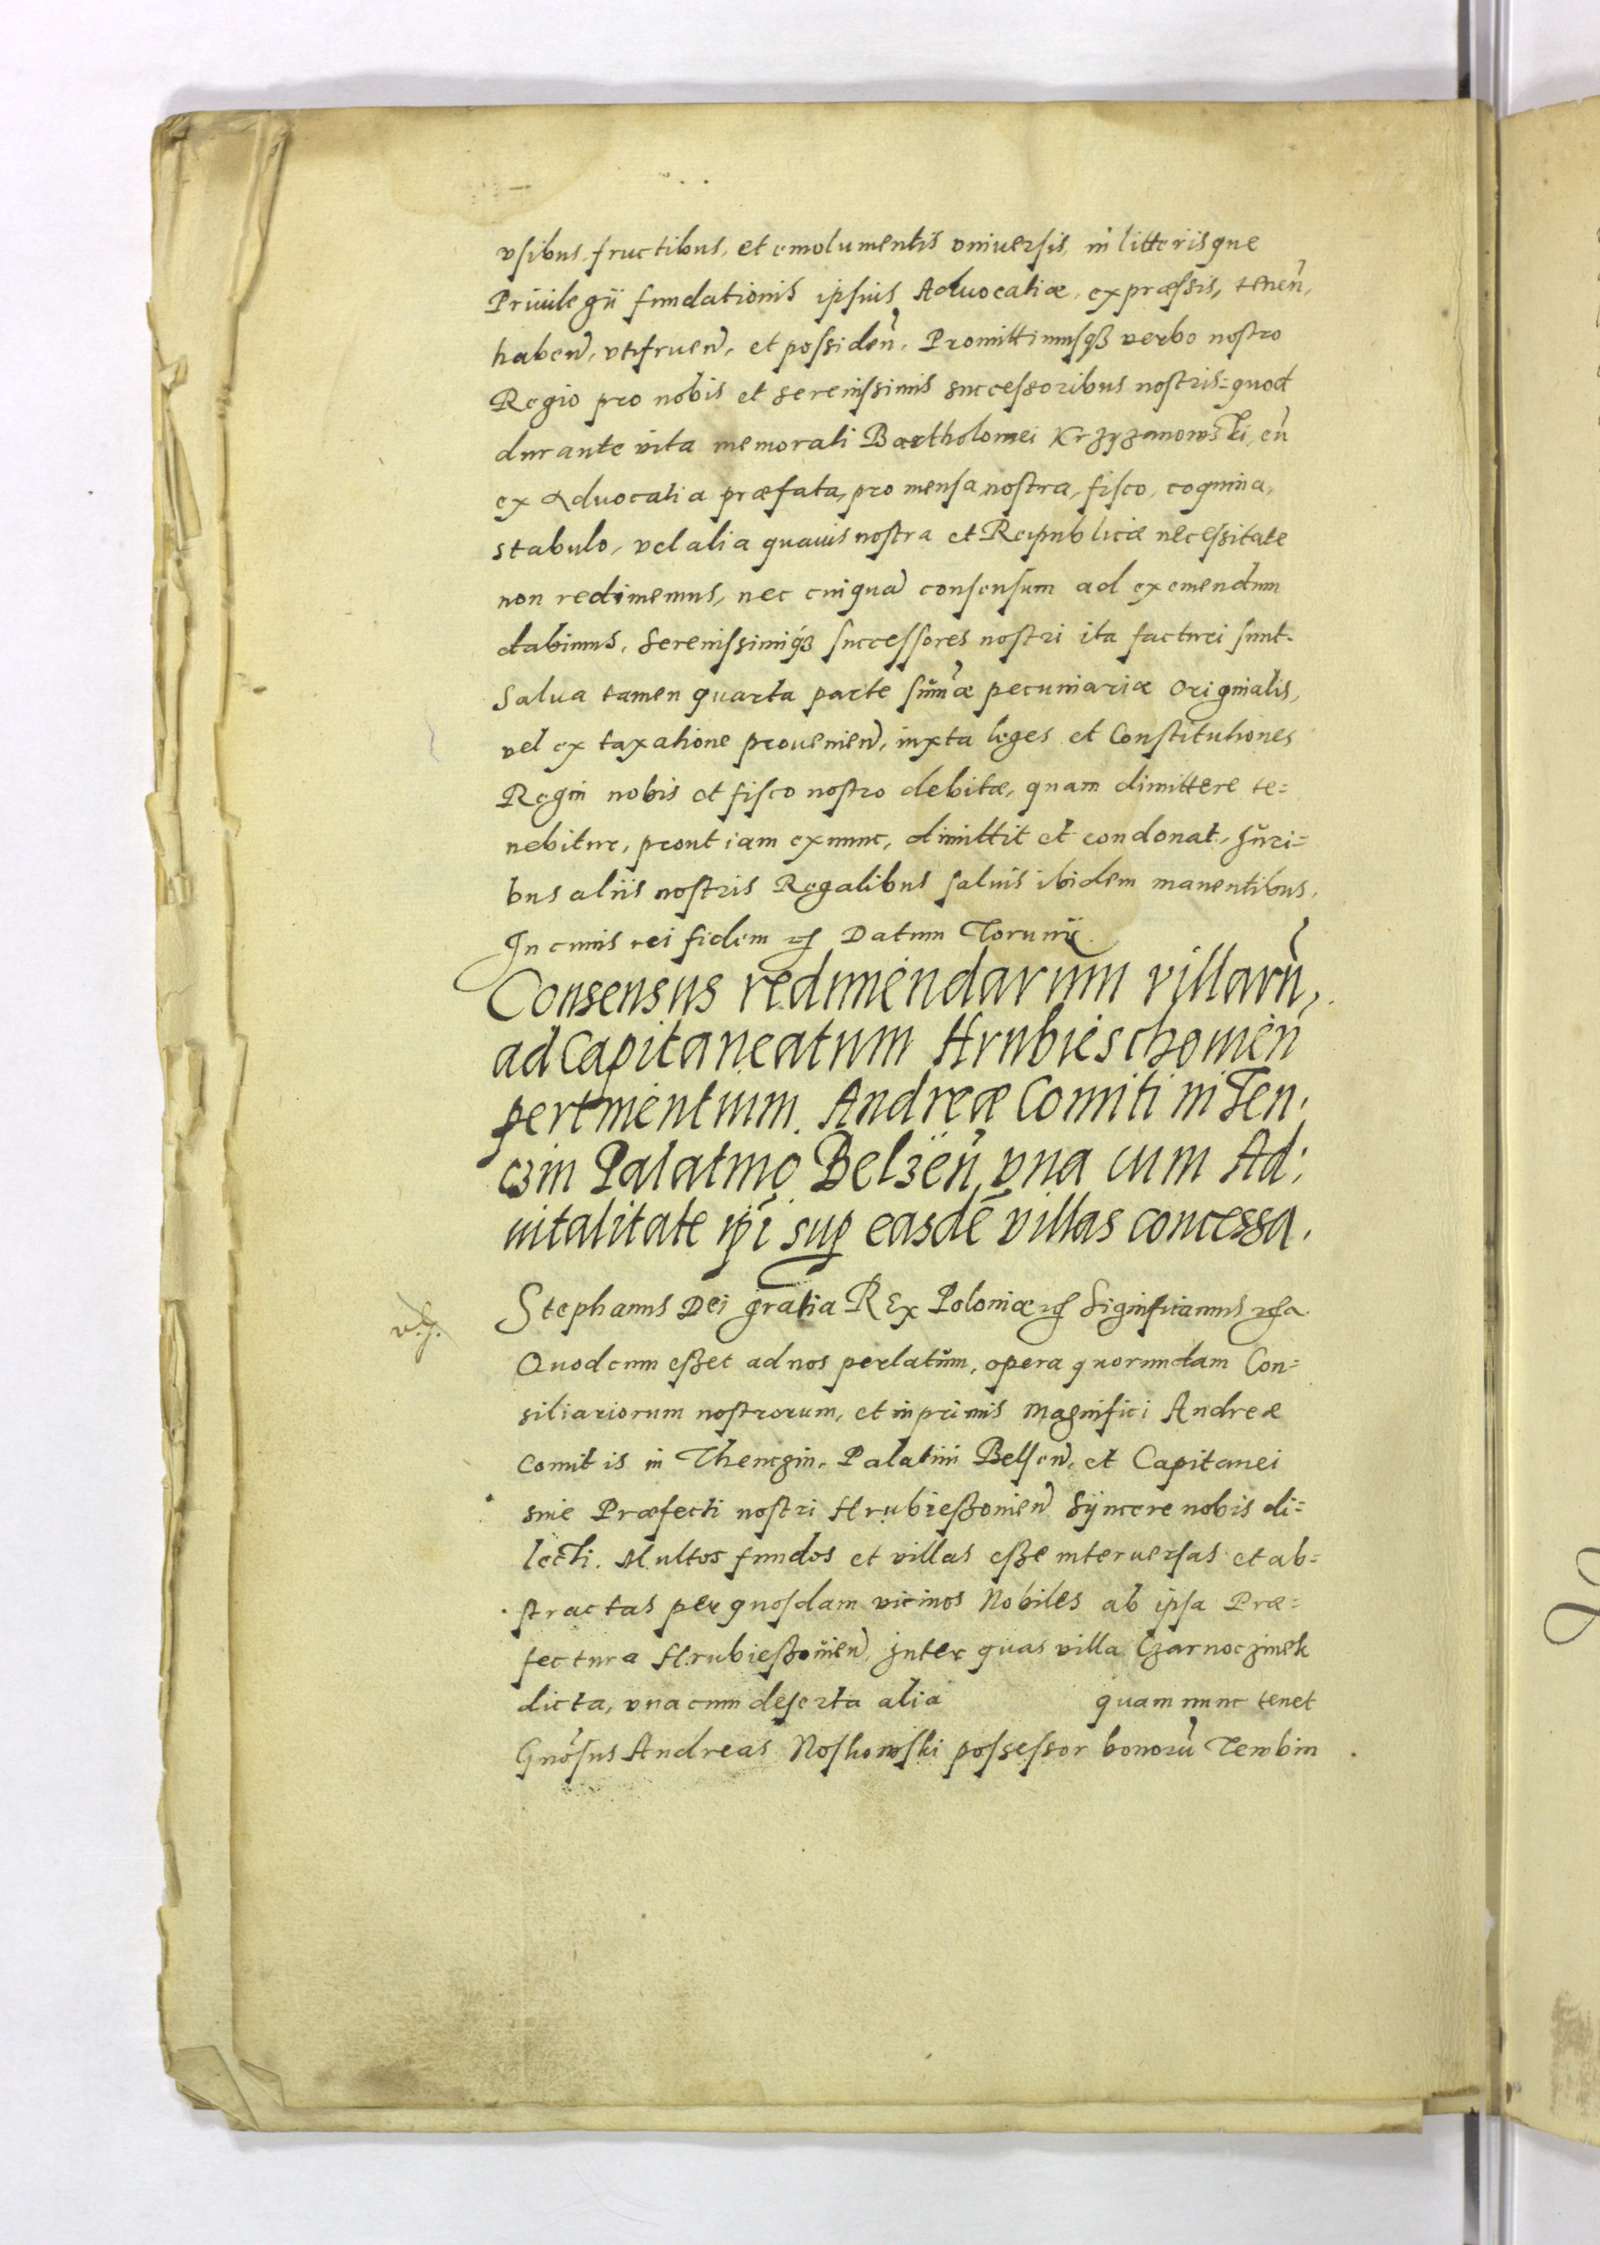 vsibus, fructibus, et emolumentis vniuersis, in litterisque
Priuilegii fundationis ipsius Aduocatiæ, expræssis, tenen̄,
haben̄, vtifruen̄, et possiden̄. Promittimusqꝫ verbo nostro
Regio pro nobis et serenissimis successoribus nostris=quod
durante vita memorati Bartholomei Krzyzanowski, eū
ex Aduocatia præfata, pro mensa nostra, fisco, coquina,
stabulo, vel alia quauis nostra et Reipublicæ necessitate
non redimemus, nec cuiquā consensum ad exemendum
dabimus, Serenissimiqꝫ successores nostri ita facturi sunt.
Salua tamen quarta parte sum̄æ pecuniariæ Originalis,
vel ex taxatione prouenien̄, iuxta leges et Constitutiones
Regni nobis et fisco nostro debitæ, quam dimittere te=
nebitur, prout iam exnunc, dimittit et condonat, Juri=
bus aliis nostris Regalibus saluis ibidem manentibus.
In cuius rei fidem ꝛc̄ Datum Torunii
Consensus redimendarum villarū,
ad Capitaneatum Hrubieschouien̄
pertinentium. Andreæ Comiti in Ten:
czin Palatino Belzen̄, vna cum Ad:
uitalitate ip̄i sup easdē villas concessa.
Stephanus Dei gratia REx Poloniæ ꝛc̄ Significamus ꝛc̄a
Quod cum esset ad nos perlatum, opera quorundam Con=
siliariorum nostrorum, et inprimis Magnifici Andreæ
Comitis in Thenczin, Palatini Belsen̄, et Capitanei
siue Præfecti nostri Hrubiessouien̄ Syncere nobis di=
lecti. Multos fundos et villas esse interuersas et ab=
stractas per quosdam vicinos Nobiles ab ipsa Præ=
fectura Hrubiessouien̄, Inter quas villa Czarnoczinek
dicta, vna cum deserta alia quam nunc tenet
Gnōsus Andreas Noskowski possessor bonorū Terebin